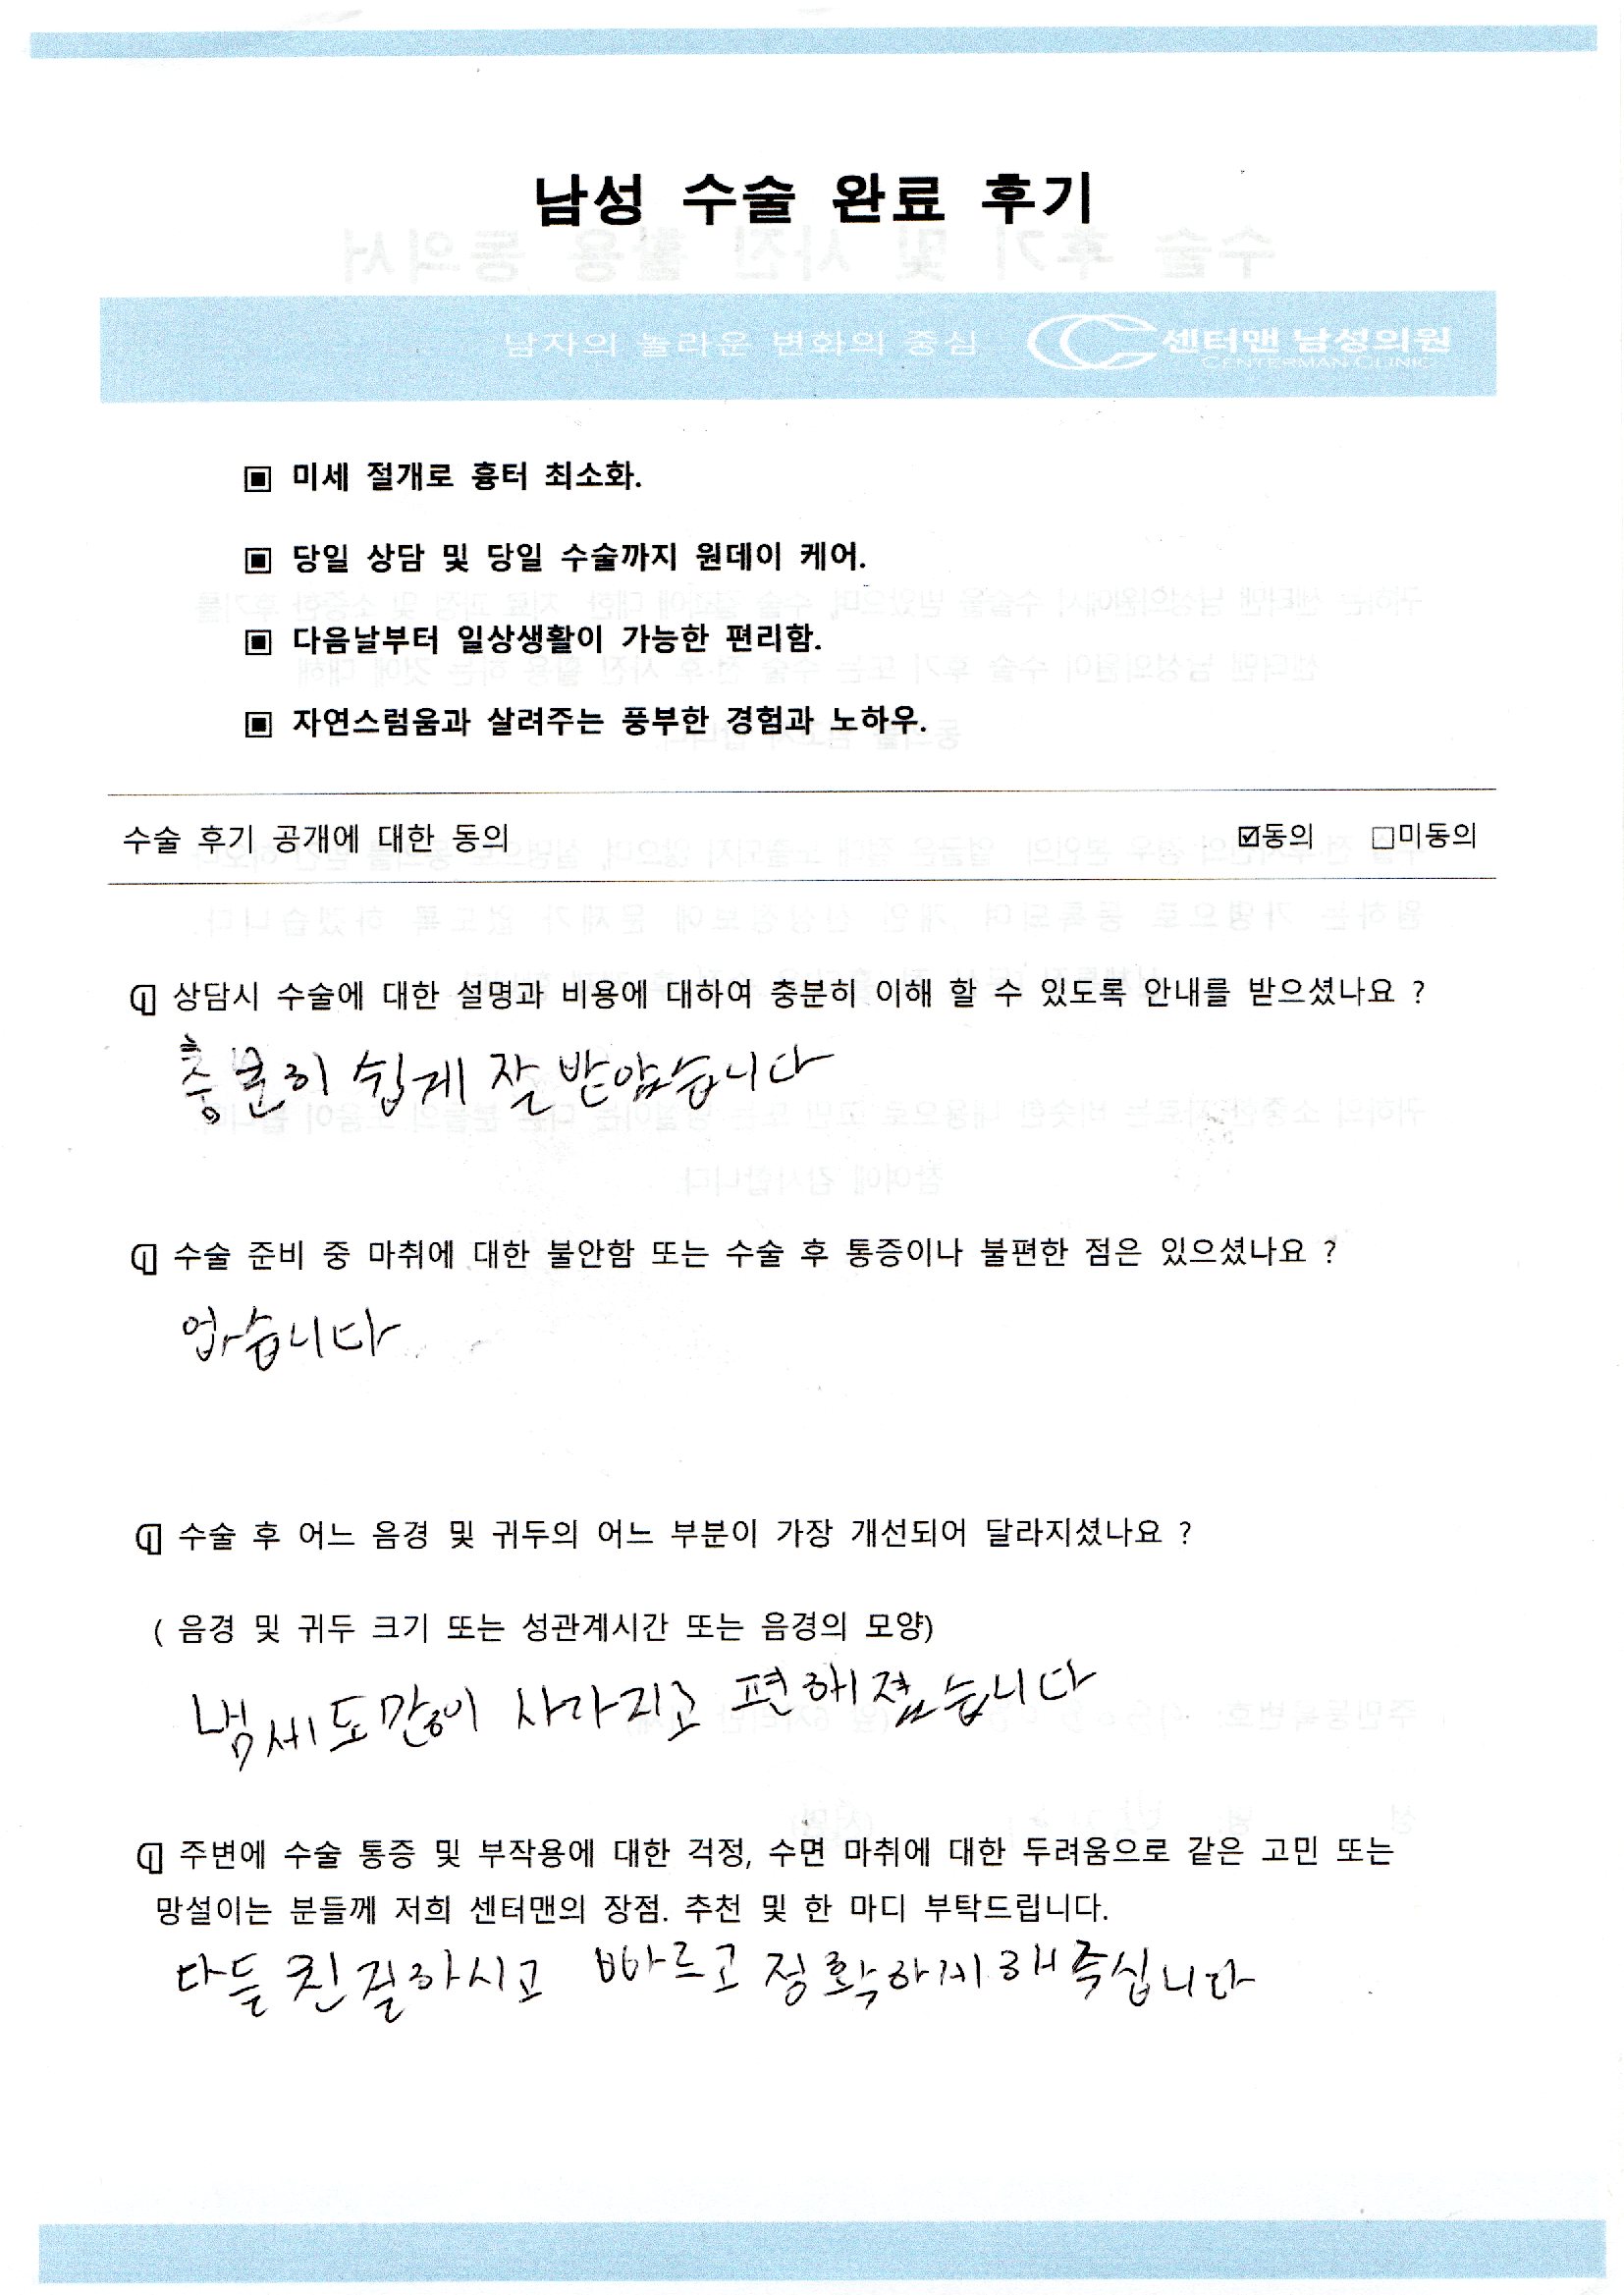 남성 수술 완료 후기
남자의 놀라운 변화의 중심 센터맨 남성의원
CENTERMAN CLINIC
▣ 미세 절개로 흉터 최소화.
▣ 당일 상담 및 당일 수술까지 원데이 케어.
▣ 다음날부터 일상생활이 가능한 편리함.
▣ 자연스럼움과 살려주는 풍부한 경험과 노하우.
수술 후기 공개에 대한 동의 ☑동의 □미동의
상담시 수술에 대한 설명과 비용에 대하여 충분히 이해 할 수 있도록 안내를 받으셨나요 ?
충분히 쉽게 잘 받았습니다
수술 준비 중 마취에 대한 불안함 또는 수술 후 통증이나 불편한 점은 있으셨나요 ?
없습니다
수술 후 어느 음경 및 귀두의 어느 부분이 가장 개선되어 달라지셨나요 ?
( 음경 및 귀두 크기 또는 성관계시간 또는 음경의 모양)
냄세도 많이 사라지고 편해졌습니다
주변에 수술 통증 및 부작용에 대한 걱정, 수면 마취에 대한 두려움으로 같은 고민 또는
망설이는 분들께 저희 센터맨의 장점. 추천 및 한 마디 부탁드립니다.
다들 친절하시고 빠르고 정확하게 해주십니다